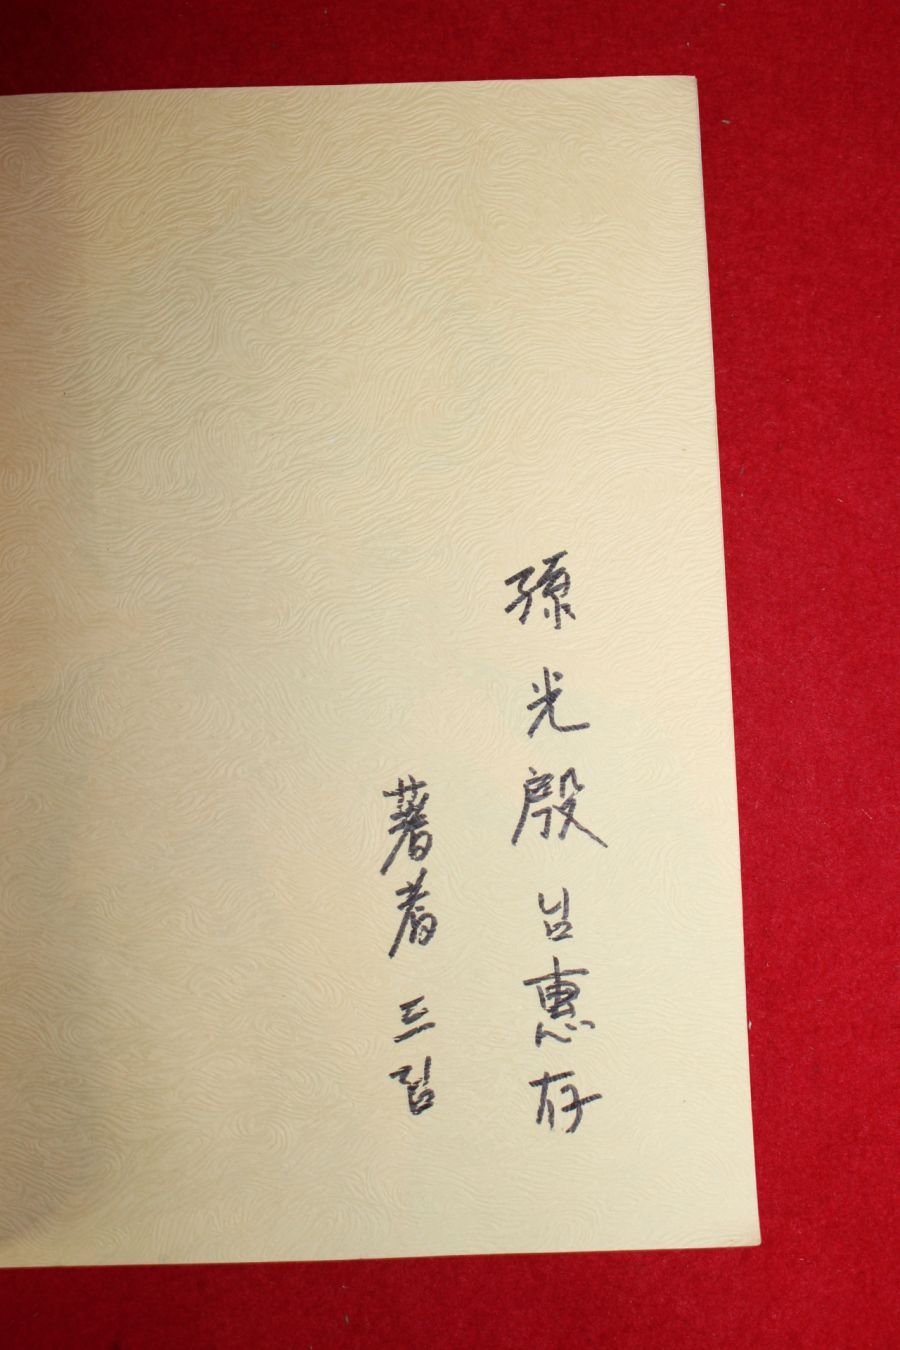 孫光殷님惠存
著者 드림